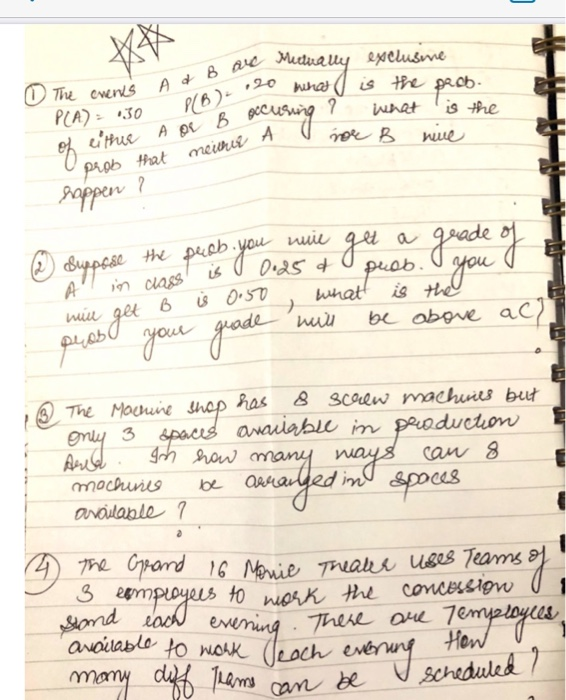 ① The events A & B are Mutually exclusive
P(A) = .30 P(B) = .20 what is the prob.
of either A or B occuring ? what is the
prob that neither A nor B will
happen ?
② Suppose the prob. you will get a grade of
A in class is 0.25 & prob. you
will get B is 0.50 , what is the
prob your grade will be above a C ?
③ The Machine shop has 8 screw machines but
only 3 spaces available in production
Area . In how many ways can 8
machines be arranged in spaces
available ?
④ The Grand 16 Movie Theater uses Teams of
3 employees to work the concession
stand each evening . There are 7 employees
available to work each evening How
many diff Teams can be scheduled ?